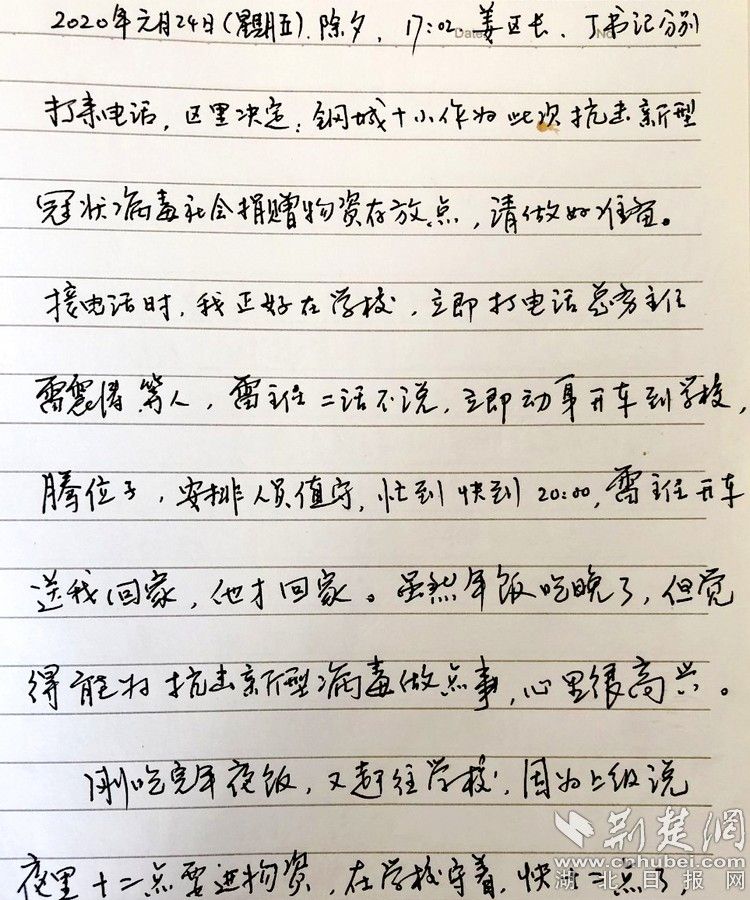 2020年元月24日(星期五).除夕，17:02 姜区长、丁书记分别
打来电话，区里决定：钢城十小作为此次抗击新型
冠状病毒社会捐赠物资存放点，请做好准备。
接电话时，我正好在学校，立即打电话总务主任
雷震清等人，雷主任二话不说，立即动身开车到学校，
腾位子，安排人员值守，忙到快到20:00，雷主任开车
送我回家，他才回家。虽然年饭吃晚了，但觉
得能为抗击新型病毒做点事，心里很高兴。
刚吃完年夜饭，又赶往学校，因为上级说
夜里十二点要进物资，在学校守着，快十二点了，
荆楚网
www.cnhubei.com
湖北日报网